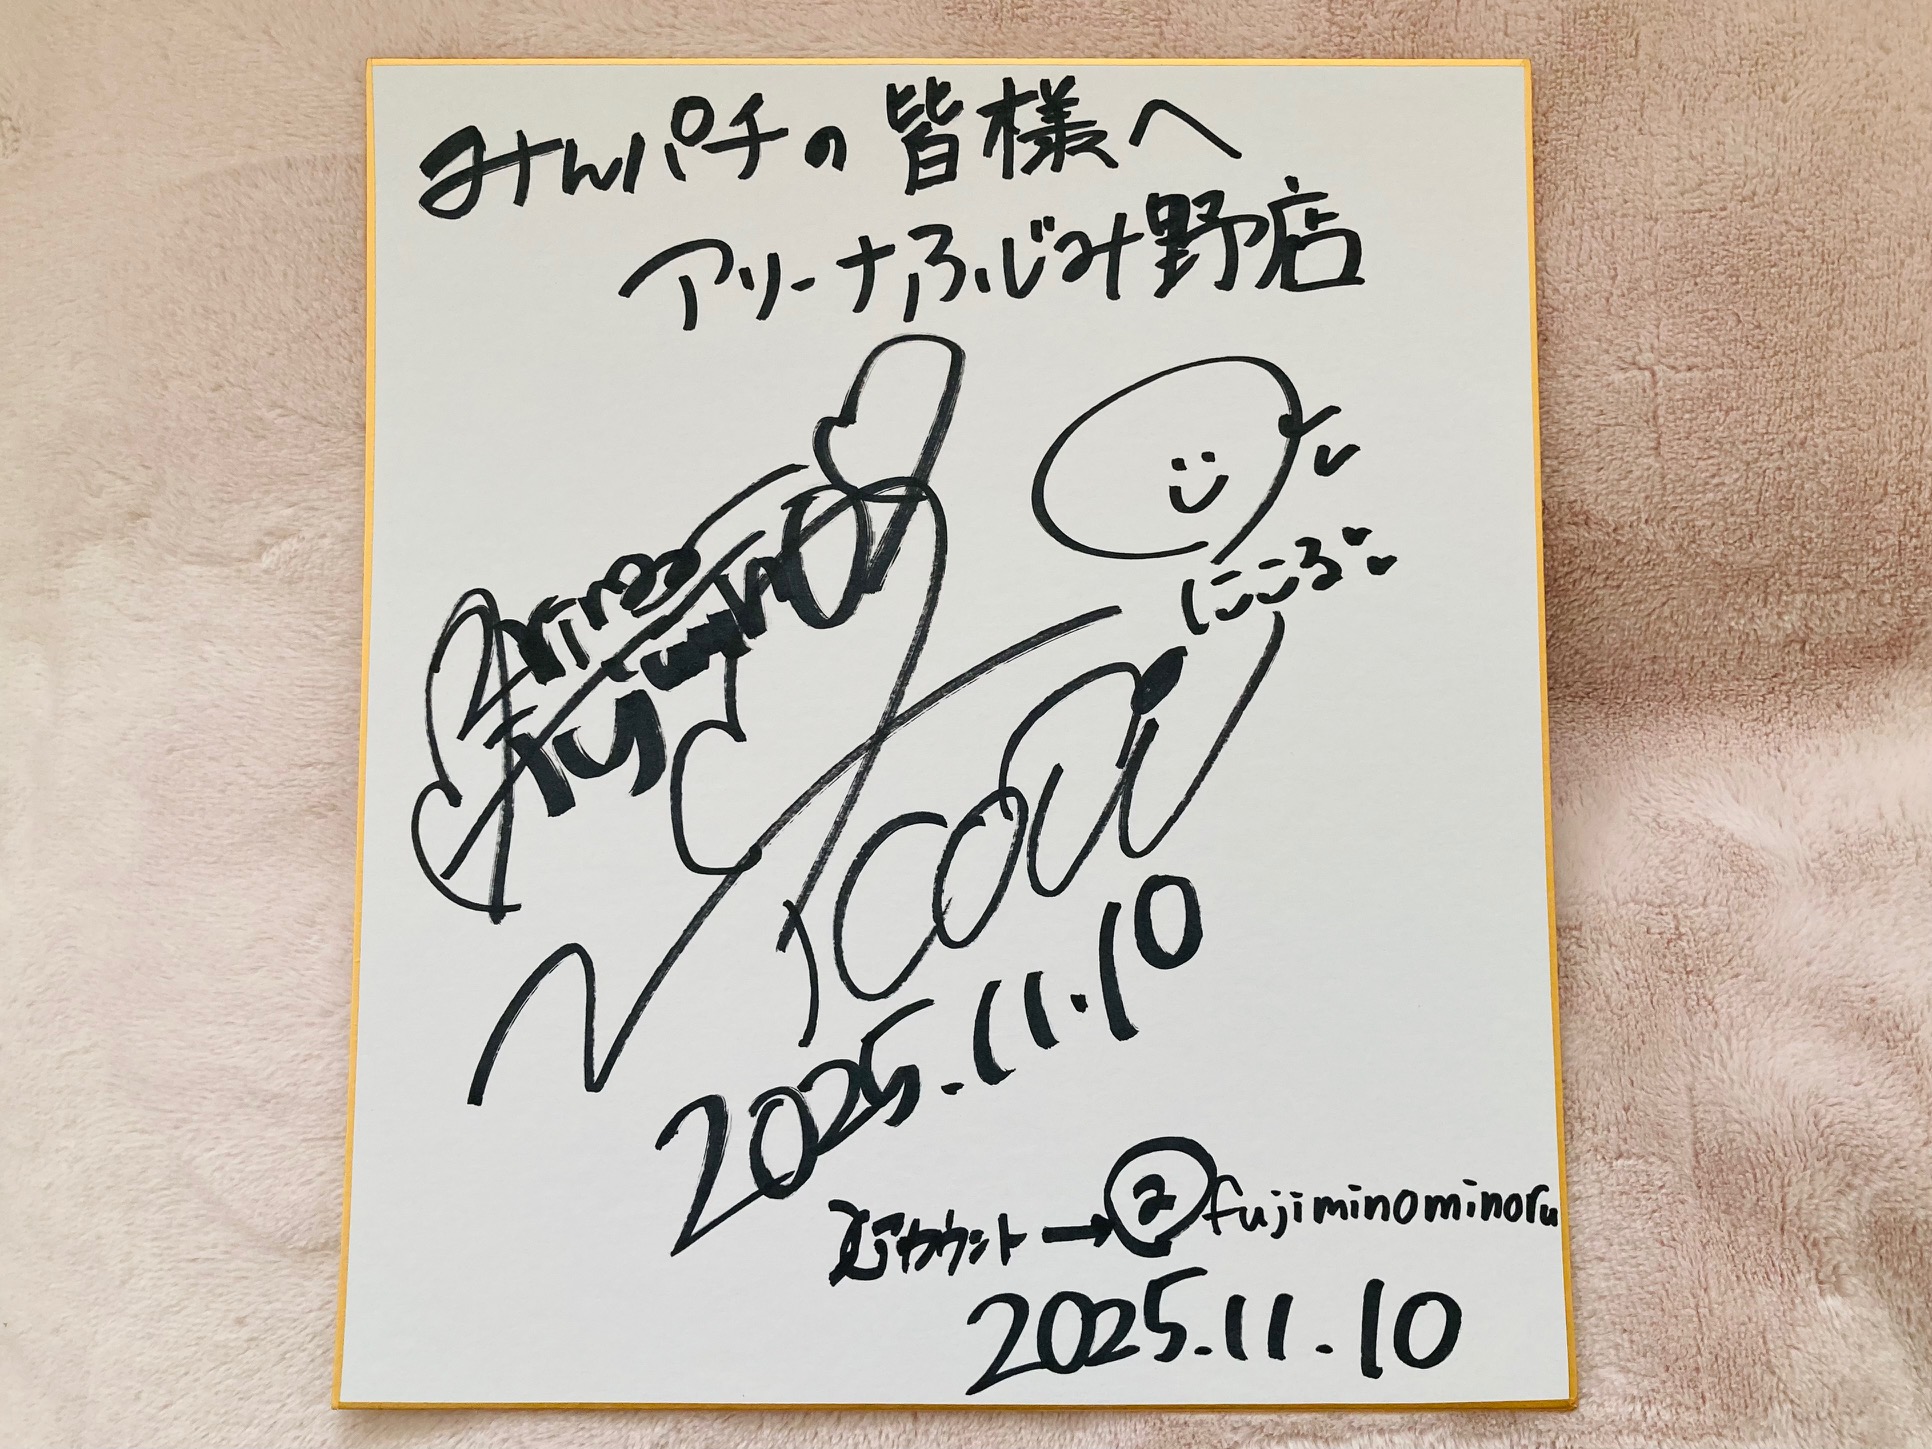 みんパチの皆様へ
アリーナふじみ野店
にころ
2025.11.10
アカウント→@fujiminominoru
2025.11.10